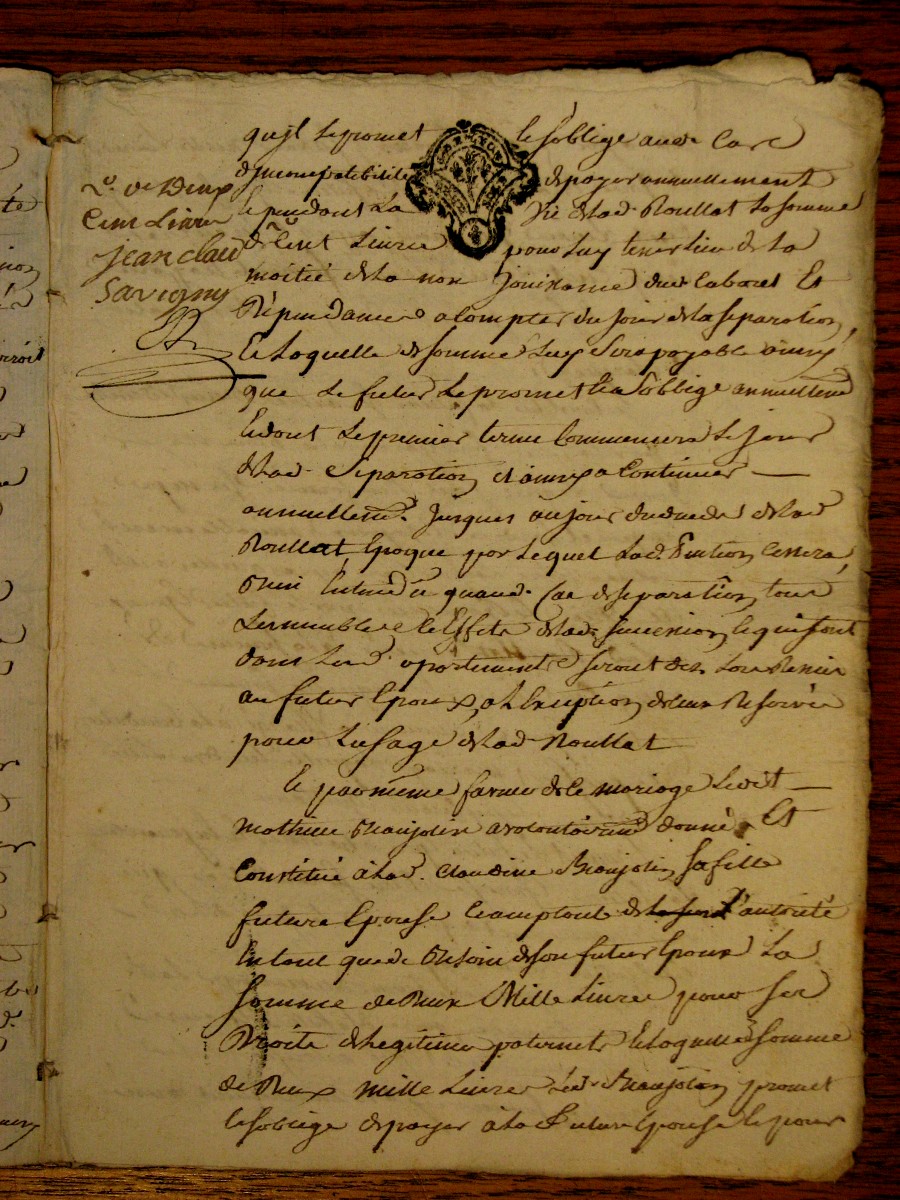 qu'il le promet et s'oblige aud. cas
d'incompatibilité de payer annuellement
et pendant la vie de lad. Roullat la somme
de cent livres pour luy tenir lieu de la
moitié de la non jouissance des
dépendances a compter du jour de la séparation,
et laquelle de somme luy sera payable ainsy
que le futur le promet et s'oblige annuellemt
et dont le premier terme commencera le jour
de lad. séparation et ainsy a continuer
annuellemt. jusques au jour du décès de lad.
Roullat époque par lequel lad. pension cessera,
bien entendu que quand. cas de séparation, tous
les meubles et effets de lad. succession, et qui sont
dans led. apartement seront
au futur époux, a l'exception de ceux réservés
pour l'usage de lad. Roullat
et par même faveur de ce mariage ledit
mathieu Beaujolin a volontairemt donné et
constitué à lad. claudine Beaujolin sa fille
future épouse l'autorité
en tant que de besoin de son futur époux la
somme de deux mille livres pour ses
droits de légitime paternels et laquelle somme
de deux mille livres led. Beaujolin promet
et s'oblige de payer à la future épouse et pour
jean claud
savigny